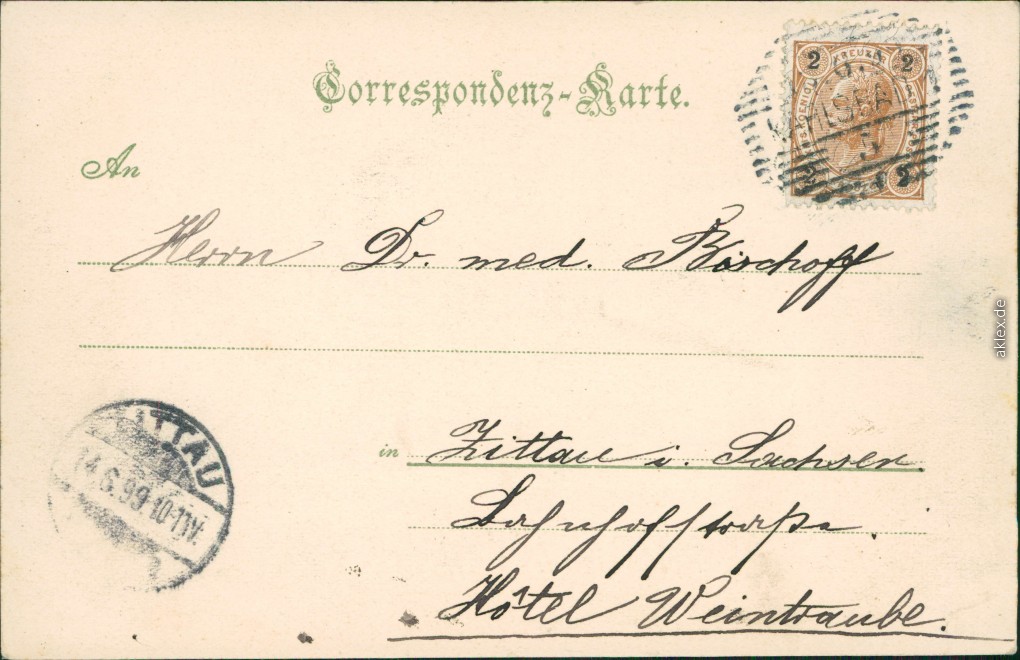 Correspondenz-Karte.
2 KREUZER 2
2
An
Herrn Dr. med. Bischoff
ZITTAU
14.6.99 10-11V.
in Zittau i. Sachsen.
Bahnhofstraße.
Hôtel Weintraube.
aklex.de